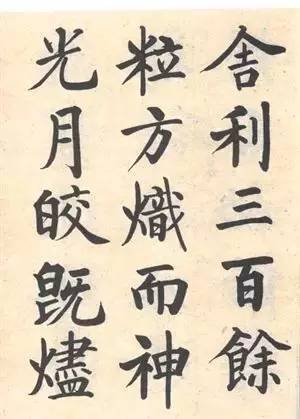 舍利三百餘
粒方熾而神
光月皎既燼